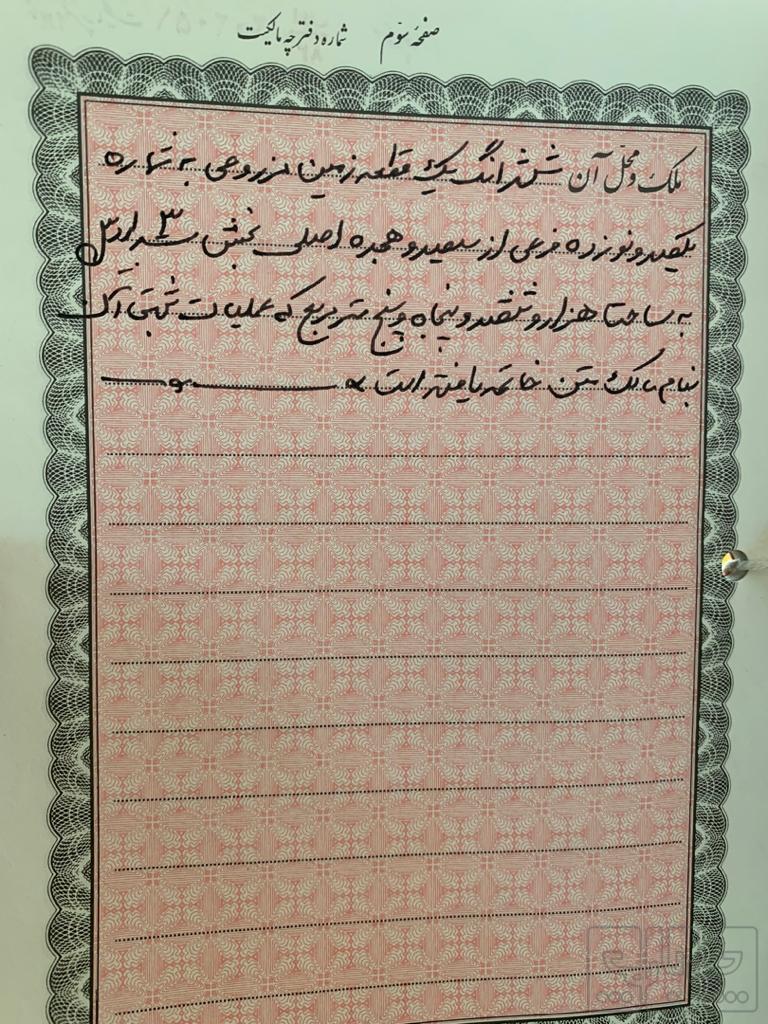 صفحه سوّم شماره دفترچه مالکیت
ملک و محل آن ششدانگ یک قطعه زمین مزروعی به شماره
یکصد و نوزده فرعی از سیصد و هجده اصلی بخش ۳
به مساحت هزار و ششصد و پنجاه و پنج متر مربع که عملیات ثبتی آن
بنام مالک متن خاتمه یافته است